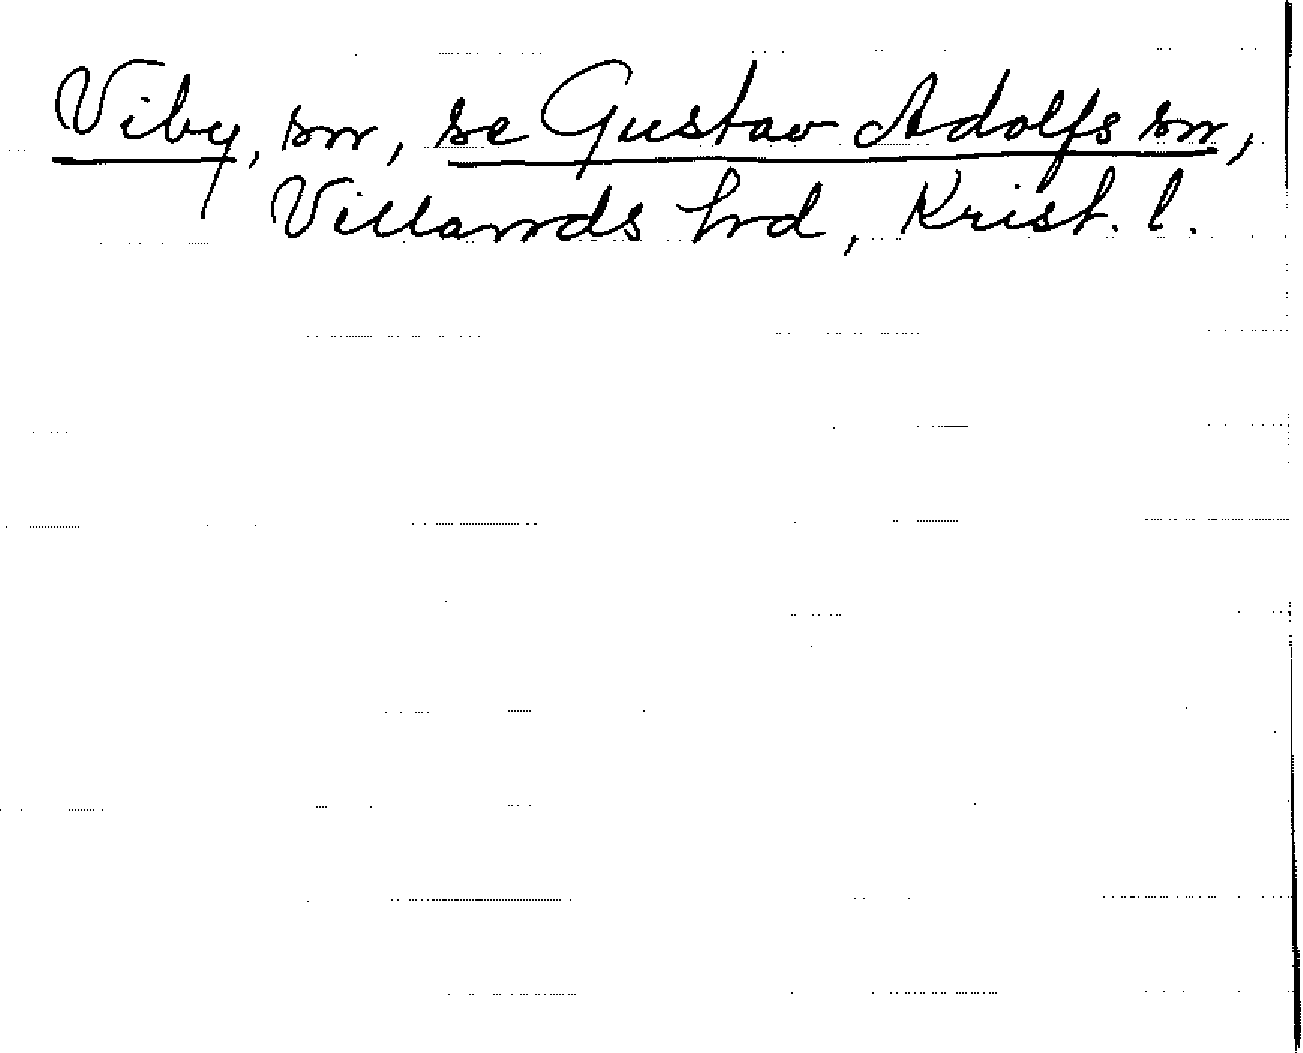 Viby, sn, se Gustav Adolfs sn,
Villands hd, Krist. l.